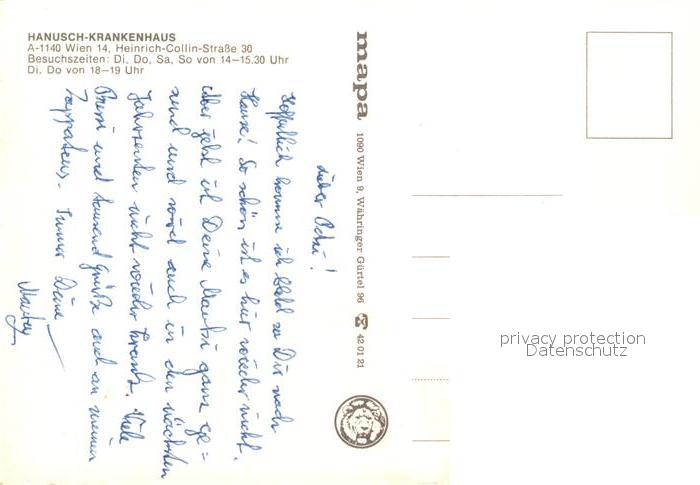 HANUSCH-KRANKENHAUS
A-1140 Wien 14, Heinrich-Collin-Straße 30
Besuchszeiten: Di, Do, Sa, So von 14–15.30 Uhr
Di. Do von 18–19 Uhr
lieber !
Hoffentlich komme ich bald zu Dir nach
Hause! So schön ist es hier wieder nicht.
Aber jetzt ist Deine ganz ge=
sund und wird auch in den nächsten
Jahrzehnten nicht wieder krank. Viele
Bussi und tausend Grüße auch an meinen
. Immer Deine
mapa
1090 Wien 9, Währinger Gürtel 96 ☎ 42 01 21
privacy protection
Datenschutz